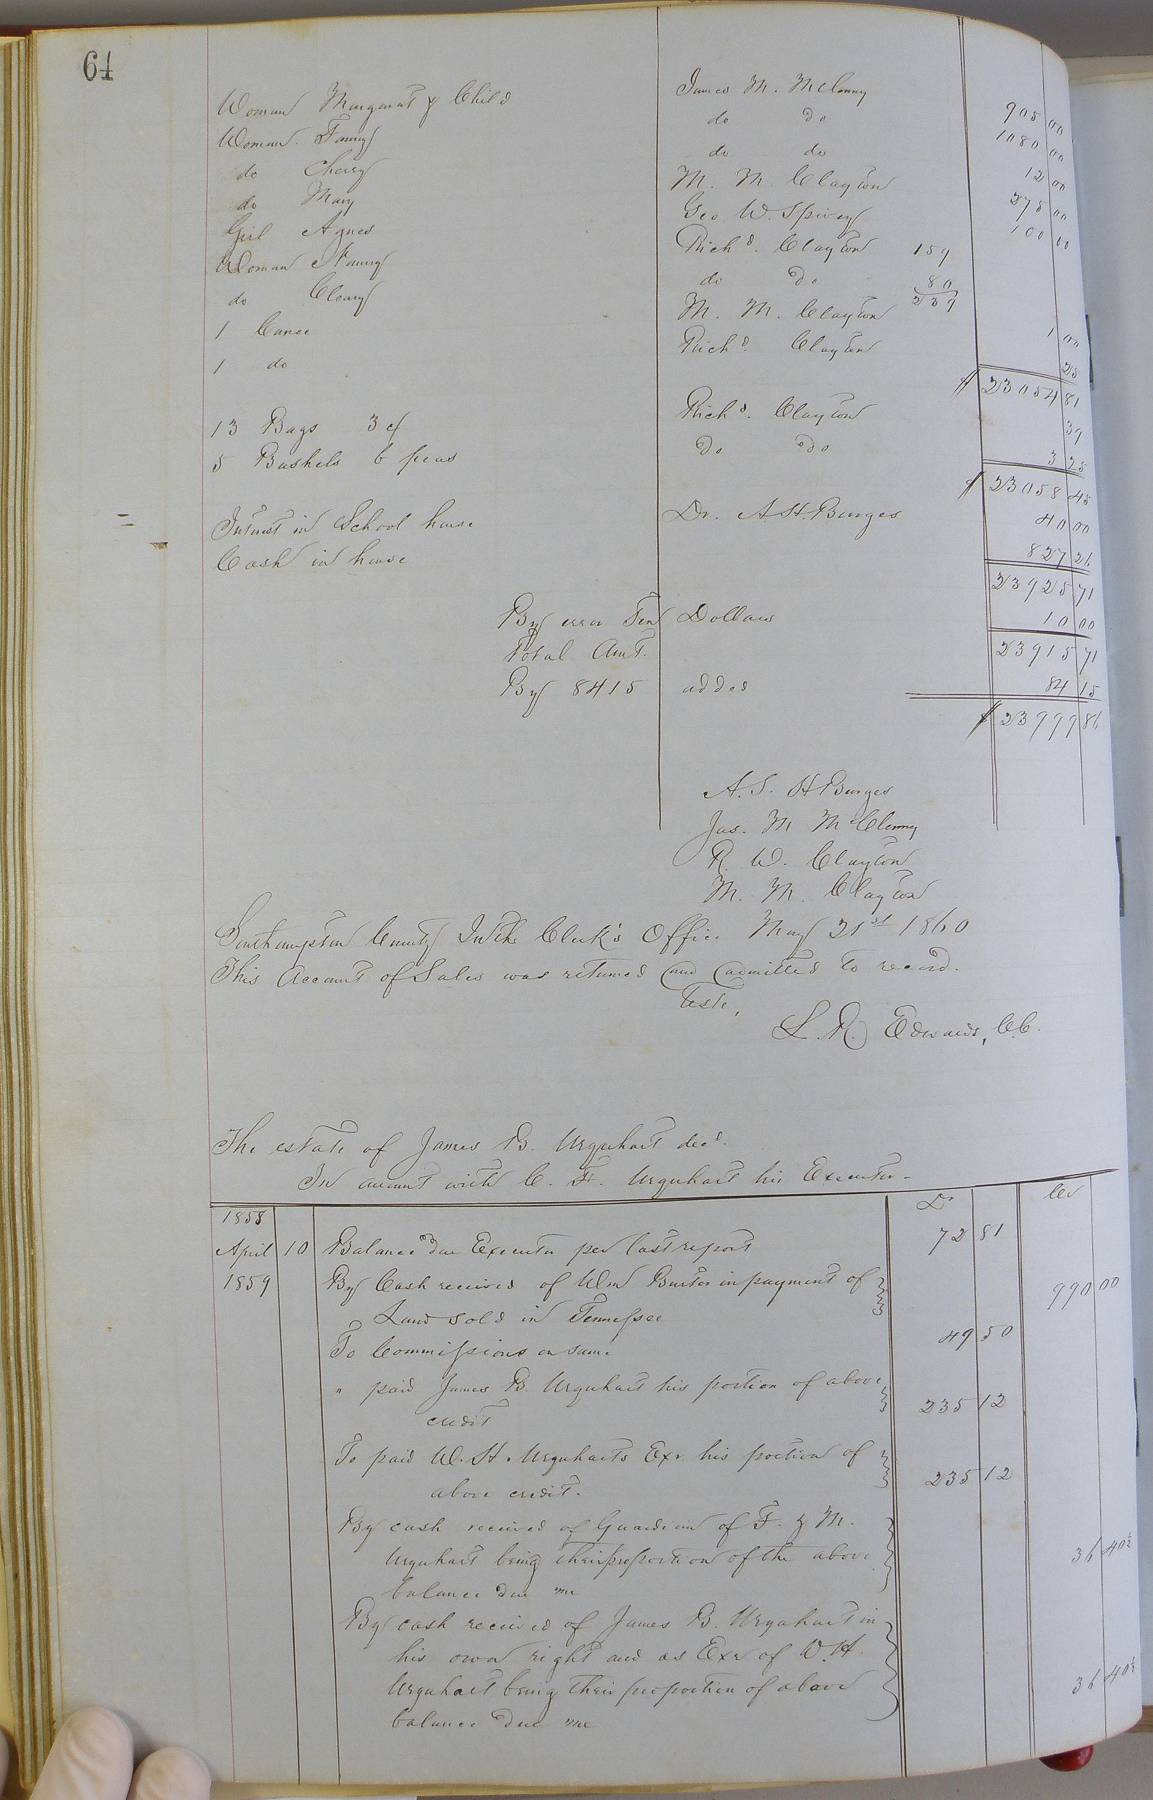 64
Woman Margaret & Child James M. McClenny 905 00
Woman Fanny do do 1080 00
do Cherry do do 12 00
do Mary M. M. Clayton 275 00
Girl Agnes Geo W. Spivey 100 00
Woman Nancy Richd. Clayton 159
do do do 80
239
1 Canoe M. M. Clayton 1 00
1 do Richd. Clayton 25
$ 23054 81
13 Bags 3 cts Richd. Clayton 39
5 Bushels B peas do do 3 25
$ 23058 45
Interest in School house Dr. A.S.H. Burges 40 00
Cash in house 827 26
23925 71
By error Ten Dollars 10 00
Total Amt. 23915 71
By 8415 added 84 15
$ 23999 86
A. S. H Burges
Jas. M McClenny
R. W. Clayton
M. M. Clayton
Southampton County In the Clerk's Office May 21st 1860
This Account of Sales was returned and admitted to record.
Teste,
L. R. Edwards, C.C.
The estate of James B. Urquhart decd.
In account with C. F. Urquhart his Executor-
Dr Cr
1858
April 10 Balance due Executor per last report 72 81
1859 By Cash received of Wm in payment of
Land sold in Tennessee 990 00
To Commissions on same 49 50
" paid James B. Urquhart his portion of above
credit 235 12
To paid W. H. Urquharts Exr. his portion of
above credit. 235 12
By cash received of Guardian of F. & M.
Urquhart being their proportion of the above
balance due me 36 40½
By cash received of James B. Urquhart in
his own right and as Exr of W. H.
Urquhart being their proportion of above
balance due me 36 40½